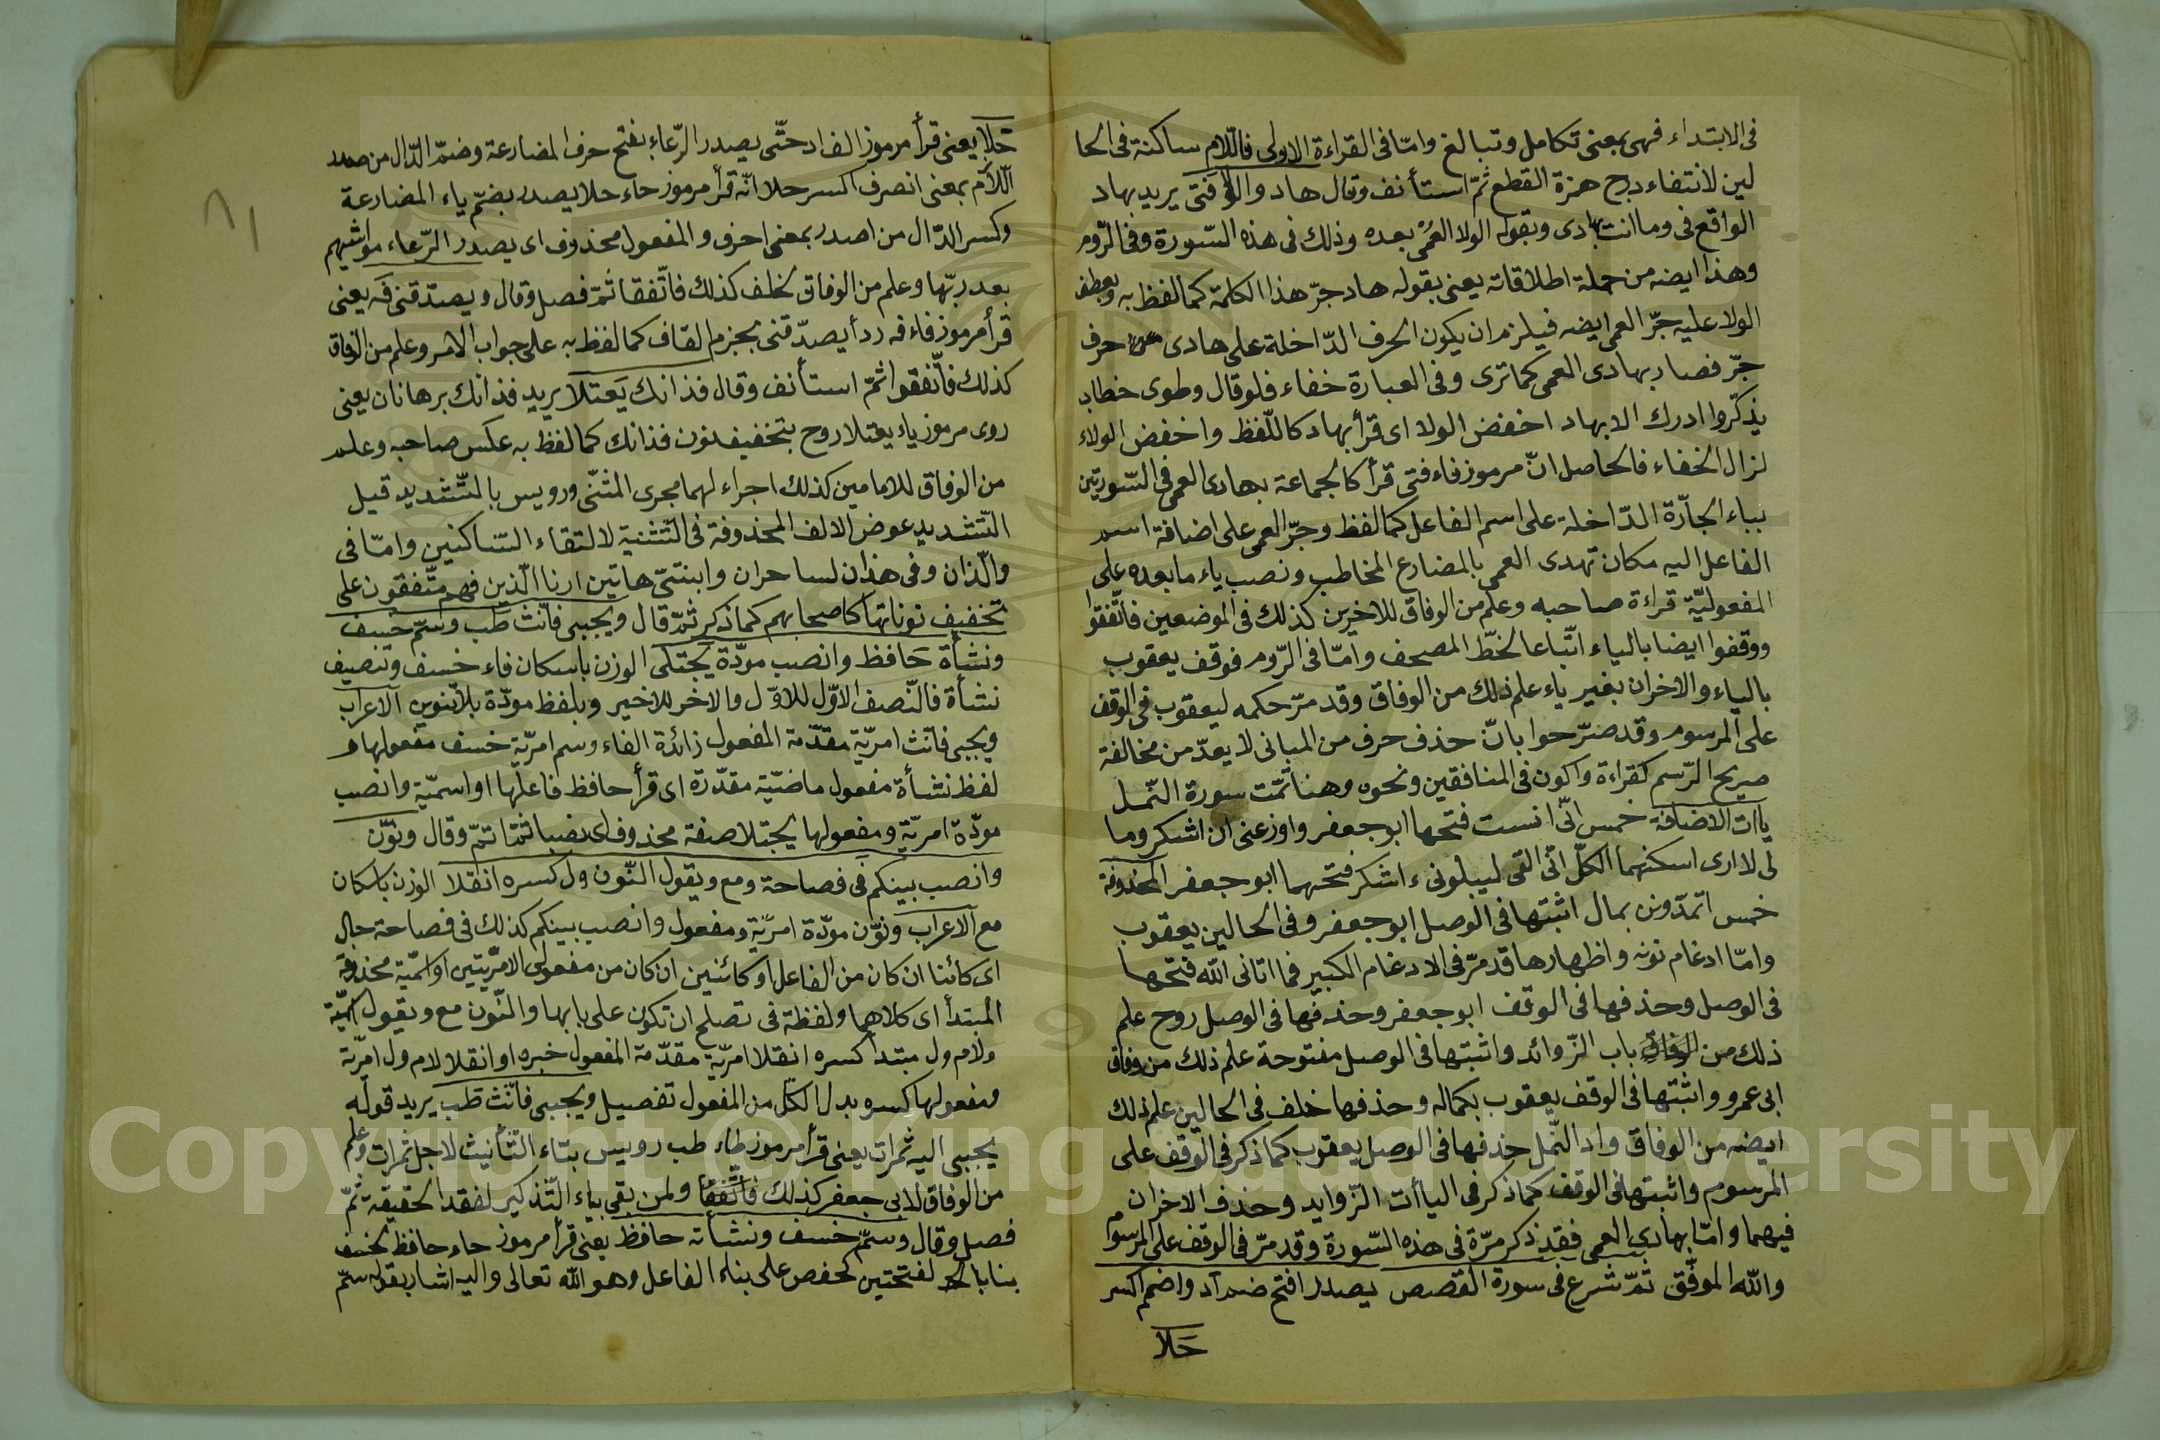 فى الابتداء فهى بمعنى تكامل وتبالغ وامّا فى القراءة الاولى فاللّام ساكنة فى الحا
لين لانتفاء درج همزة القطع ثمّ استأنف وقال هاد والولا فتى يريد بهاد
الواقع فى وما انت بهادى وبقوله الولا العمى بعده وذلك فى هذه السّورة وفى الرّوم
وهذا ايضه من جملة اطلاقاته يعنى بقوله هاد جرّ هذا الكلمة كما لفظ به وبعطف
الولا عليه جرّ العمى ايضه فيلزم ان يكون الحرف الدّاخلة على هادى حرف
جرّ فصار بهادى العمى كما ترى وفى العبارة خفاء فلو قال وطوى خطاب
يذكّروا ادرك الا بهاد اخفض الولا اى قرأ بهاد كاللّفظ واخفض الولاء
لزال الخفاء فالحاصل انّ مرموز فاء فتى قرأ كالجماعة بهادى العمى فى السّورتين
بباء الجارّة الدّاخلة على اسم الفاعل كما لفظ وجرّ العمى على اضافة اسم
الفاعل اليه مكان تهدى العمى بالمضارع المخاطب ونصب ياء ما بعده على
المفعوليّة قراءة صاحبه وعلم من الوفاق للاخرين كذلك فى الموضعين فاتّفقوا
ووقفوا ايضا بالياء اتّباعا لخطّ المصحف وامّا فى الرّوم فوقف يعقوب
بالياء والاخران بغير ياء علم ذلك من الوفاق وقد مرّ حكمه ليعقوب فى الوقف
على المرسوم وقد صرّحوا بانّ حذف حرف من المبانى لا يعدّ من مخالفة
صريح الرّسم كقراءة واكون فى المنافقين ونحوه وهنا تمّت سورة النّمل
ياآت الاضافة خمس انّى انست فتحها ابو جعفر واوزعنى ان اشكر وما
لى لا ارى اسكنهما الكلّ انّى القى ليبلونى ء اشكر فتحهما ابو جعفر المحذوفة
خمس اتمدّونن بمال اثبتها فى الوصل ابو جعفر وفى الحالين يعقوب
وامّا ادغام نونه واظهارها قد مرّ فى الادغام الكبير فما اتانى الله فتحها
فى الوصل وحذفها فى الوقف ابو جعفر وحذفها فى الوصل روح علم
ذلك من باب الزّوائد واثبتها فى الوصل مفتوحة علم ذلك من وفاق
ابى عمرو واثبتها فى الوقف يعقوب بكماله وحذفها خلف فى الحالين علم ذلك
ايضه من الوفاق واد النّمل حذفها فى الوصل يعقوب كما ذكر فى الوقف على
المرسوم واثبتها فى الوقف كما ذكر فى الياآت الزّوايد وحذف الاخران
فيهما وامّا بهادى العمى فقد ذكر مرّة فى هذه السّورة وقد مرّ فى الوقف على المرسوم
والله الموفّق ثمّ شرع فى سورة القصص يصدر افتح ضم اد واضمم اكسر
حَلا
حَلا يعنى قرأ مرموز الف اد حتّى يصدر الرّعاء بفتح حرف المضارعة وضمّ الدّال من صدر
اللّام بمعنى انصرف اكسر حلا انّه قرأ مرموز حاء حلا يصدر بضمّ ياء المضارعة
وكسر الدّال من اصدر بمعنى احرف والمفعول محذوف اى يصدر الرّعاء مواشيهم
بعد ريّها وعلم من الوفاق لخلف كذلك فاتّفقا ثمّ فصل وقال ويصدّقنى فه يعنى
قرأ مرموز فاء فه ردأ يصدّقنى بجزم القاف كما لفظ به على جواب الامر وعلم من الوفاق
كذلك فاتّفقوا ثمّ استأنف وقال فذانك يَعتلا يريد فذانك برهانان يعنى
روى مرموز ياء يعتلا روح بتخفيف نون فذانك كما لفظ به عكس صاحبه وعلم
من الوفاق للامامين كذلك اجراء لهما مجرى المثنّى ورويس بالتّشديد قيل
التّشديد عوض الالف المحذوفة فى التّثنية لالتقاء السّاكنين وامّا فى
والّذان وفى هذان لساحران وابنتىّ هاتين ارنا الّذين فهم متّفقون على
تخفيف نوناتها كاصحابهم كما ذكر ثمّ قال ويجبى فانّث طب وسمّ خسف
ونشأة حَافظ وانصب مودّة يجتلى الوزن باسكان فاء خسف وتنصيف
نشأة فالنّصف الاوّل للاوّل والاخر للاخير وبلفظ مودّة بلا تنوين الاعراب
ويجبى فانّث امريّة مقدّمة المفعول زائدة الفاء وسم امريّة خسف مفعولها و
لفظ نشأة مفعول ماضيّة مقدّرة اى قرأ حافظ فاعلها او اسميّة وانصب
مودّة امريّة ومفعولها يجتلا صفة محذوف اى نصبا ثمّ وقال ونوّن
وانصب بينكم فى فصاحة ومع ويقول النّون ول كسره انقلا الوزن باسكان
مع الاعراب ونوّن مودّة امريّة ومفعول وانصب بينكم كذلك فى فصاحة حال
اى كائنا ان كان من الفاعل او كائنين ان كان من مفعولى الامريّتين او اسميّة محذوفة
المبتدأ اى كلاهما ولفظة فى تصلح ان تكون على بابها والنّون مع ويقول اسميّة
ولام ول مبتدا كسره انقلا امريّة مقدّمة المفعول خبره او انقلا لام ول امريّة
ومفعولها كسره بدل الكلّ من المفعول تفصيل ويجبى فانّث طَب يريد قوله
يجبى اليه ثمرات يعنى قرأ مرموز طاء طب رويس بتاء التّأنيث لاجل ثمرات وعلم
من الوفاق لابى جعفر كذلك فاتّفقا ولمن بقى بياء التّذكير لفقد الحقيقة ثمّ
فصل وقال وسمّ خسف ونشأته حافظ يعنى قرأ مرموز حاء حافظ لخسف
بنا لفتحتين كحفص على بناء الفاعل وهو الله تعالى واليه اشار بقوله سمّ
٨١
Copyright © King Saud University